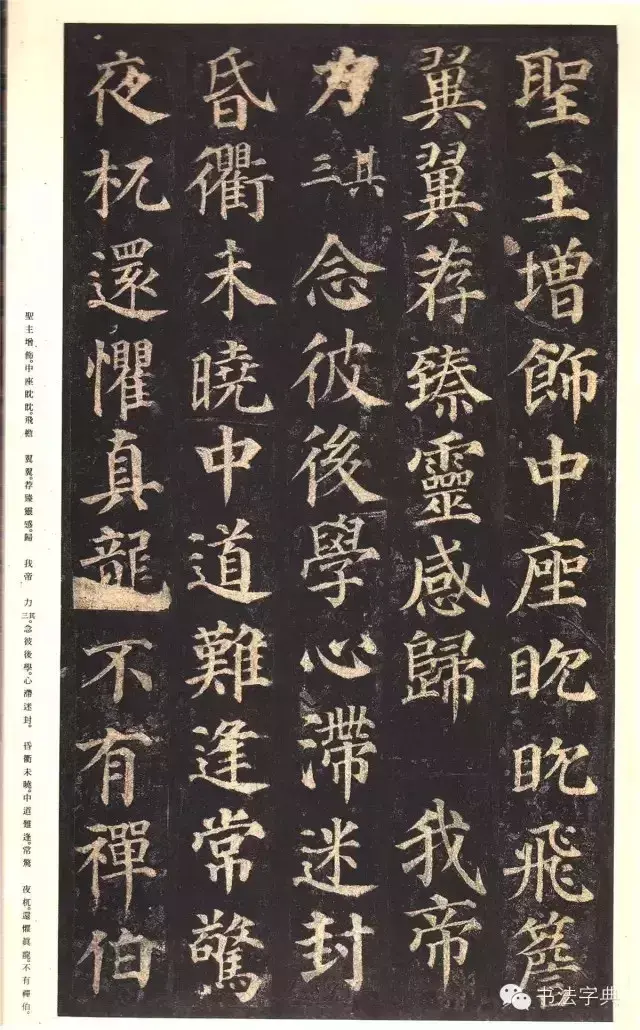 聖主增飾中座眈眈飛簷
翼翼荐臻靈感歸 我帝
力 其三 念彼後學心滯迷封
昏衢未曉中道難逢常驚
夜杌還懼真龍不有禪伯
聖主增飾。中座眈眈。飛檐 翼翼。荐臻靈感。歸 我帝 力 其三。念彼後學。心滯迷封。 昏衢未曉。中道難逢。常驚 夜杌。還懼眞龍。不有禪伯。
书法字典